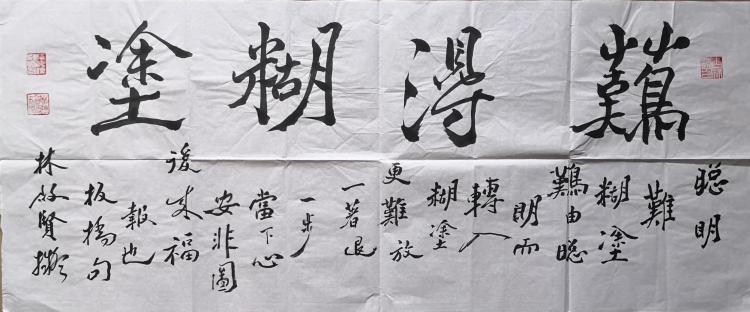 難得糊塗
聰明
難
糊塗
難由聰
明而
轉入
糊塗
更難放
一著退
一步
當下心
安非圖
後來福
報也
板橋句
林賢